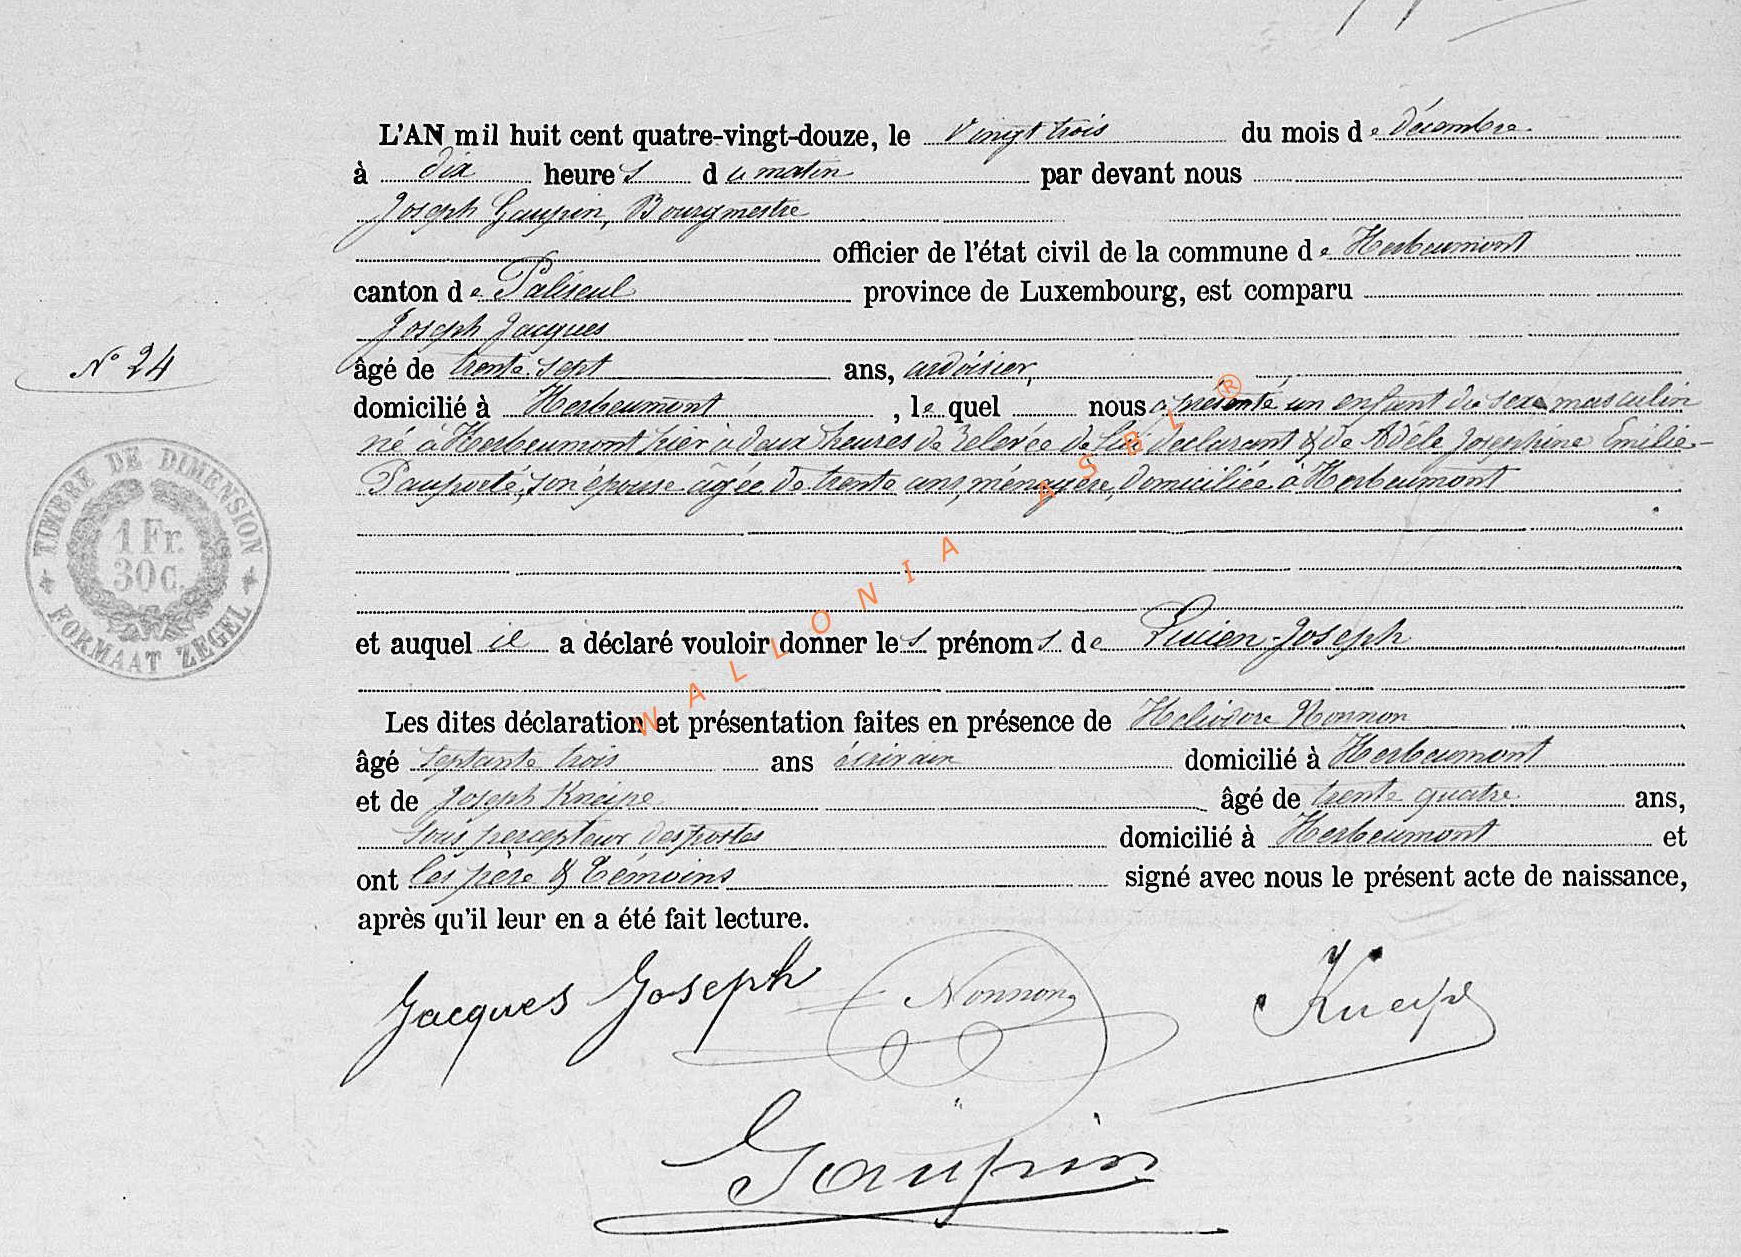 L'AN mil huit cent quatre-vingt-douze, le Vingt trois du mois de décembre
à dix heures du matin par devant nous
Joseph Gaupin, Bourgmestre
officier de l'état civil de la commune de Herbeumont
canton de Paliseul province de Luxembourg, est comparu
Joseph Jacques
N° 24
âgé de trente sept ans, ardoisier,
domicilié à Herbeumont, lequel nous a présenté un enfant du sexe masculin
né à Herbeumont hier à deux heures de relevée de lui déclarant & de Adèle Josephine Emilie
Pauporté, son épouse âgée de trente ans, ménagère, domiciliée à Herbeumont
TIMBRE DE DIMENSION
1 Fr.
30 c.
FORMAAT ZEGEL
et auquel il a déclaré vouloir donner les prénoms de Lucien-Joseph
Les dites déclaration et présentation faites en présence de Heliodore Nonnon
âgé septante trois ans écrivain domicilié à Herbeumont
et de Joseph Kneipe âgé de trente quatre ans,
sous percepteur des postes domicilié à Herbeumont et
ont les père & témoins signé avec nous le présent acte de naissance,
après qu'il leur en a été fait lecture.
Jacques Joseph Nonnon Kneipe
Gaupin
WALLONIA ASBL ®